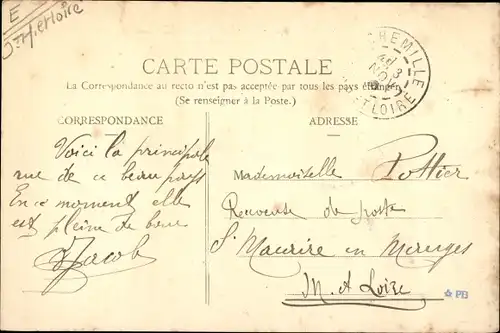 E
CARTE POSTALE
La Correspondance au recto n'est pas acceptée par tous les pays étrangers
(Se renseigner à la Poste.)
CORRESPONDANCE
ADRESSE
Voici la principale
rue de ce beau pays
En ce moment elle
est pleine de boue
Jacob
Mademoiselle Pottier
Receveuse de poste
St Maurire en Mauges
M. et Loire
PB